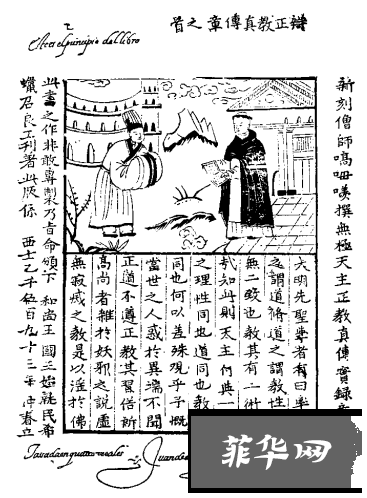 辯正教真傳章之首
Acto el principio dal libro
新刻僧師嗃呣嘆撰無極天主正教真傳實錄
大明先聖學者有曰率
之謂道脩道之謂教性
無二致也教其有二術
哉知此則天主
之理性同也道同也教
同也何以差殊
當世之人惑於異端不聞
正道不遵正教其習俗所
高尚者雜於妖邪之說虛
無寂滅之教是以淫於佛
此書之作非敢專制乃旨命頒下 和尚王 國王始就民希
蠟召良工刊著此版係 西士乙千伍百九十三年仲春立
Tasada en quatro reales
Juan de
菲华网